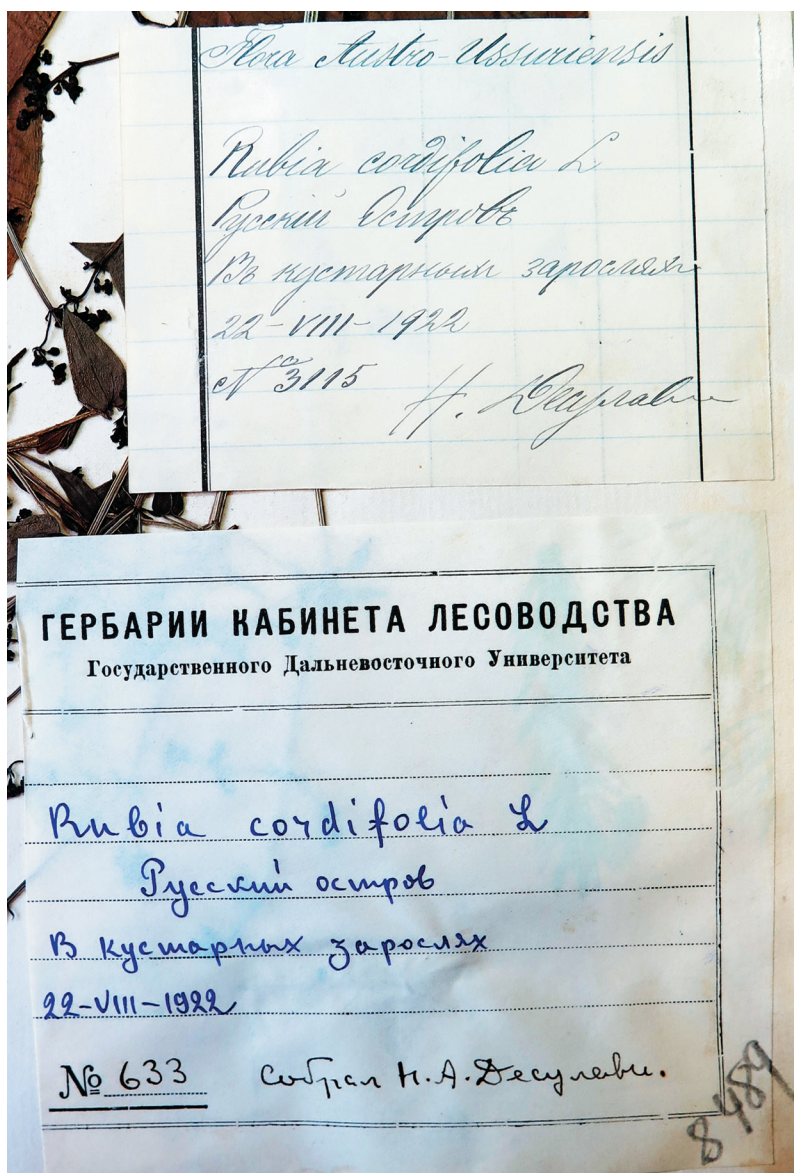 Flora Austro-Ussuriensis
Rubia cordifolia L
Русскій Островъ
Въ кустарныхъ заросляхъ
22-VIII-1922
№ 3115
Н. Десулави
ГЕРБАРИИ КАБИНЕТА ЛЕСОВОДСТВА
Государственного Дальневосточного Университета
Rubia cordifolia L
Русский остров
В кустарных зарослях
22-VIII-1922
№ 633 Собрал Н.А.Десулави.
8489